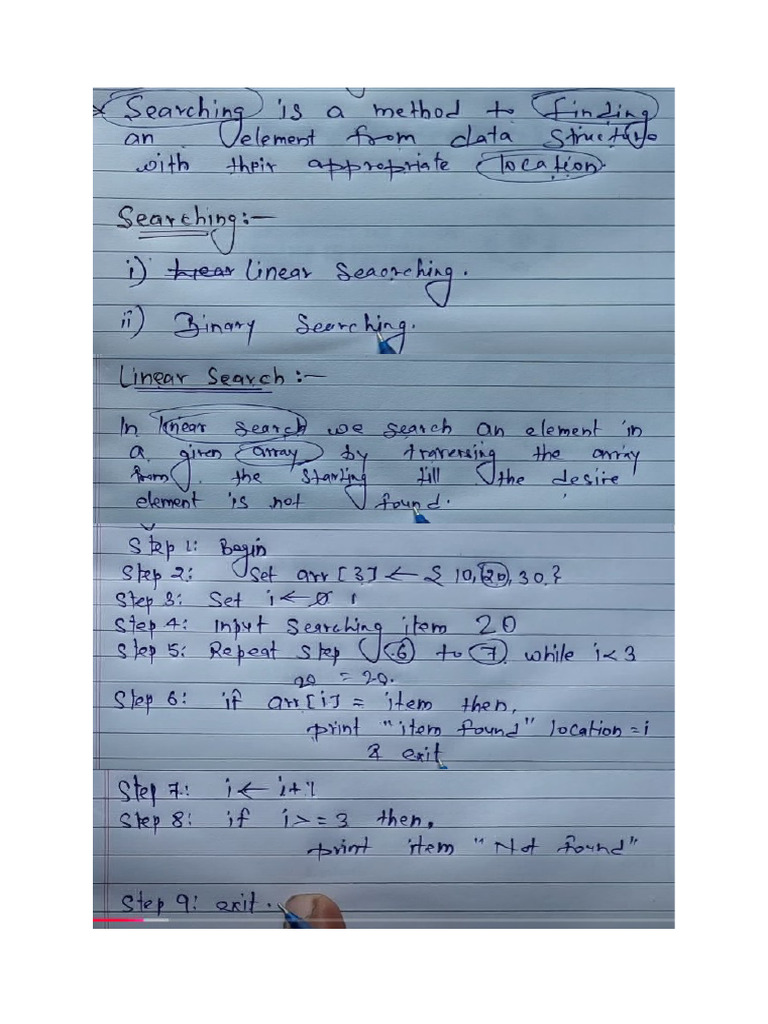 * Searching is a method to finding
an element from data structure
with their appropriate location.
Searching:-
i) Linear Seaorching.
ii) Binary Searching.
Linear Search:-
In linear search we search an element in
a given array by traversing the array
from the starting till the desire
element is not found.
Step 1: Begin
Step 2: Set arr[3] ← {10, 20, 30.}
Step 3: Set i ← 0 1
Step 4: Input Searching item 20
Step 5: Repeat Step 6 to 7 while i<3
20 = 20.
Step 6: if arr[i] = item then,
print "item found" location = i
& exit
Step 7: i ← i+1
Step 8: if i>=3 then,
print item "Not found"
Step 9: exit.